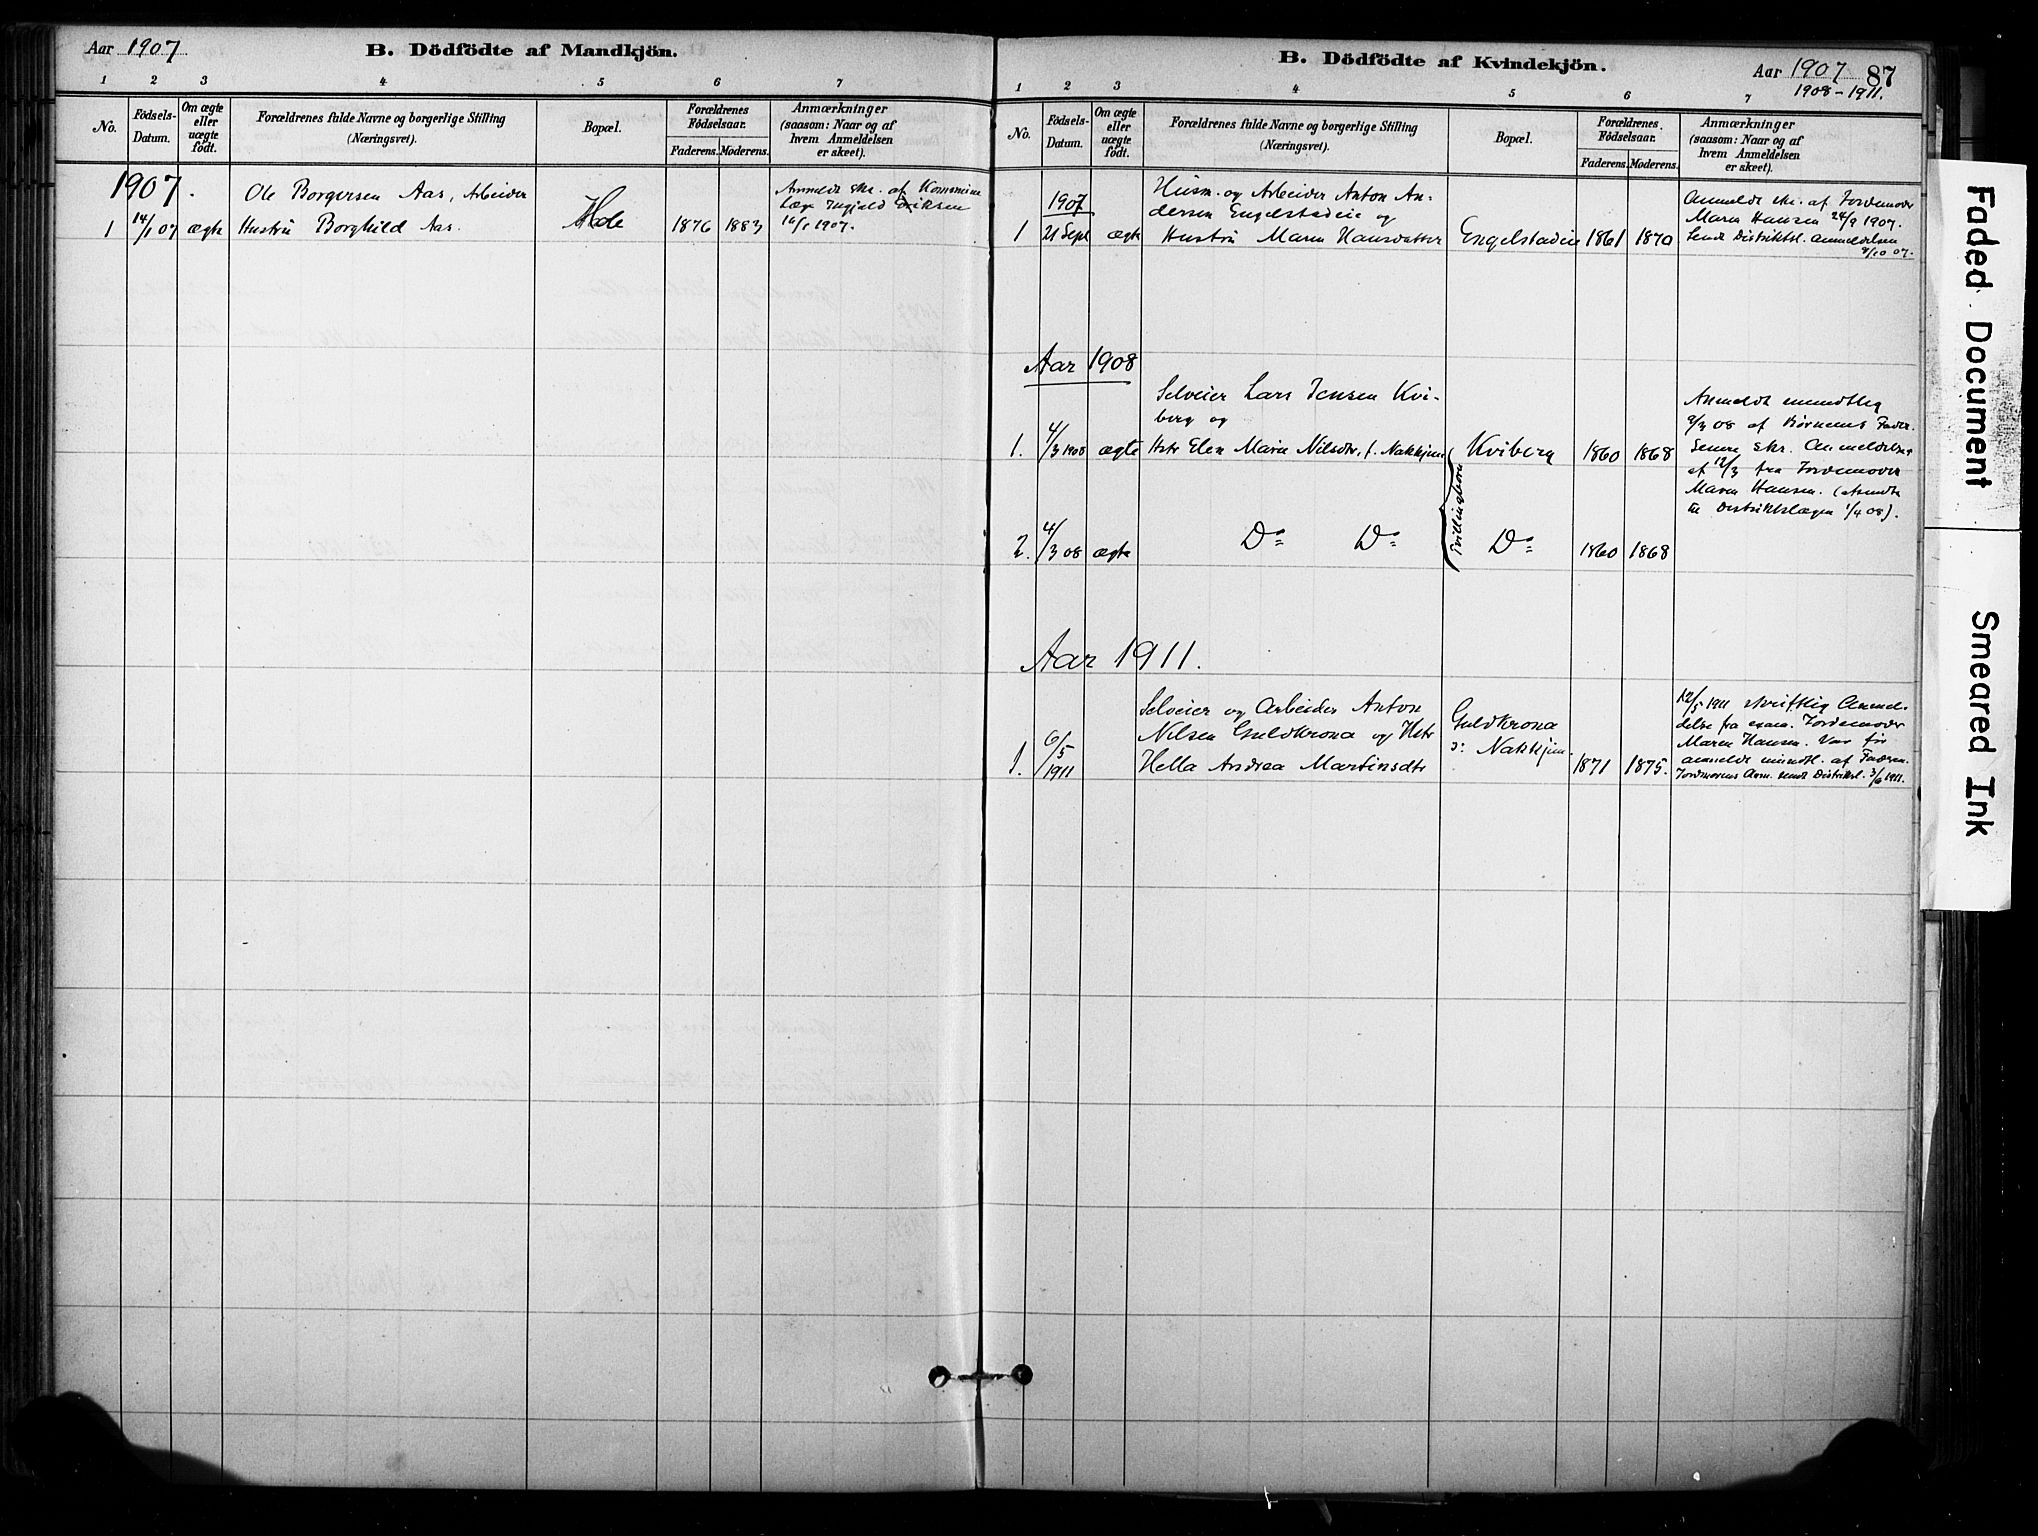 Aar 1907
B. Dödfödte af Mandkjön.
1 2 3 4 5 6 7
No.
Födsels-Datum.
Om ægte eller uægte födt.
Forældrenes fulde Navne og borgerlige Stilling (Næringsvei).
Bopæl.
Forældrenes Födselsaar.
Faderens. Moderens.
Anmærkninger (saasom: Naar og af hvem Anmeldelsen er skeet).
1907.
Ole Borgersen Aas, Arbeider
1 14/1 07 ægte Hustru Borghild Aas. Hole 1876 1883
Anmeldt skr. af Kommune
læge Ingjald Eriksen
16/1 1907.
B. Dödfödte af Kvindekjön.
Aar 1907 87
1908-1911.
1 2 3 4 5 6 7
No.
Födsels-Datum.
Om ægte eller uægte födt.
Forældrenes fulde Navne og borgerlige Stilling (Næringsvei).
Bopæl.
Forældrenes Födselsaar.
Faderens. Moderens.
Anmærkninger (saasom: Naar og af hvem Anmeldelsen er skeet).
1907
Husm. og Arbeider Anton An-
dersen Engelstadeie og
1 21 Sept ægte Hustru Maren Hansdatter Engelstadeie 1861 1870
Anmeldt skr. af Jordemoder
Maren Hansen 24/9 1907.
Sendt Distriktsl. Anmeldelsen
8/10 07.
Aar 1908
Selveier Lars Jensen Kvi-
berg og
1. 4/3 1908 ægte Hstr Elen Marie Nilsdtr. f. Nakkjem Kviberg 1860 1868
Anmeldt mundtlig
9/3 08 af Börnenes Fader.
Senere skr. Anmeldelse
af 12/3 fra Jordemoder
Maren Hansen. (afsendt
til Distriktslægen 1/4 08).
Tvillingbørn
2. 4/3 08 ægte Do Do Do 1860 1868
Aar 1911.
Selveier og Arbeider Anton
Nilsen Guldkrona og Hstr
1. 6/5 1911 Hella Andrea Martinsdtr
Guldkrona
ɔ: Nakkjem.
1871 1875.
12/5 1911 skriftlig Anmel-
delse fra exam. Jordemoder
Maren Hansen. Var før
anmeldt mundtl. af Faderen.
Jordmorens Anm. sendt Distriktsl. 3/6 1911.
Faded Document
Smeared Ink